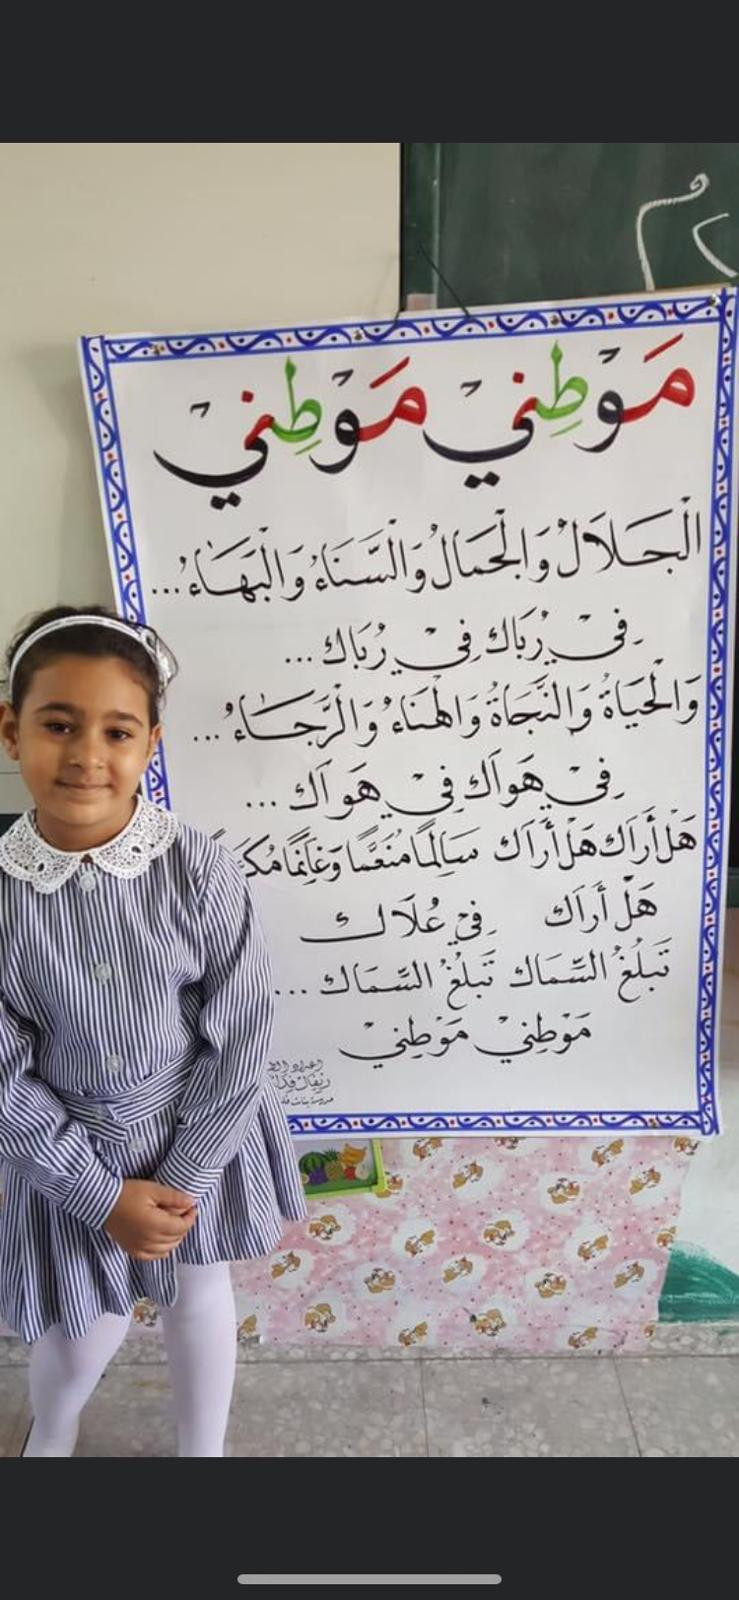 م
مَوْطِنيْ مَوْطِنيْ
الْجَلَالُ وَالْجَمَالُ وَالسَّنَاءُ وَالْبَهَاءُ...
فيْ رُبَاك فيْ رُبَاك...
وَالْحَيَاةُ وَالنَّجَاةُ وَالهْنَاءُ وَالرَّجَاءُ...
فيْ هَوَاك فيْ هَوَاك...
هَلْ أَرَاك هَلْ أَرَاك سَالِمًا مُنَعَّمًا وَغَانِمًا
هَلْ أَرَاك فيْ عُلَاك
تَبلُغُ السِّمَاك تَبلُغُ السِّمَاك...
مَوْطِنيْ مَوْطِنيْ
اعداد
مدرسة بنات